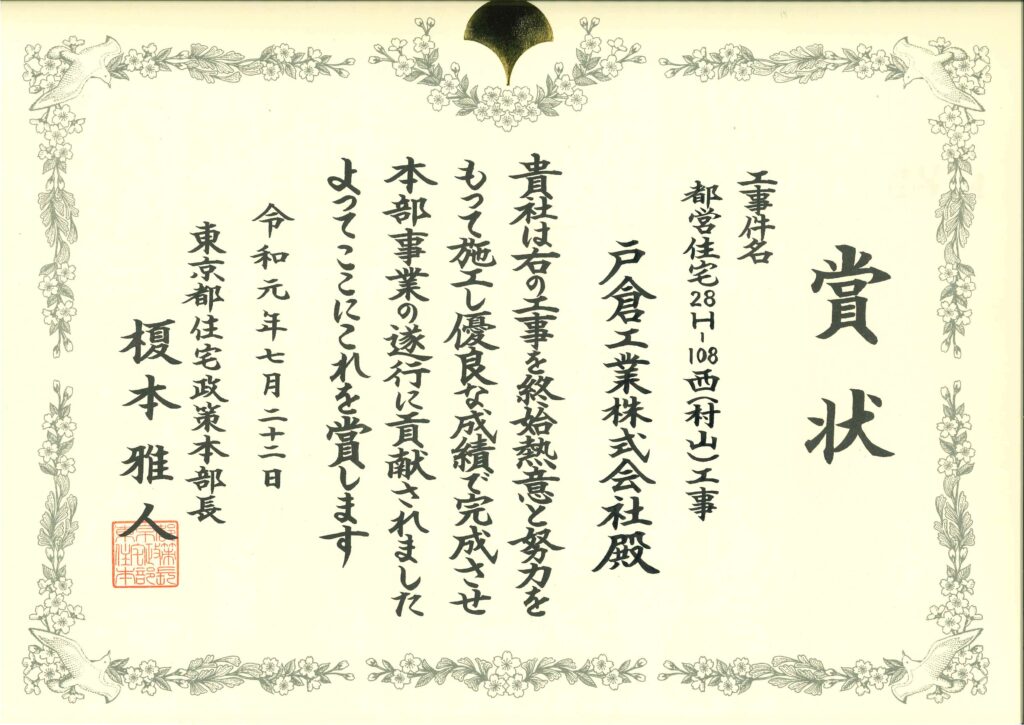 賞状
工事件名
都営住宅28H-108西(村山)工事
戸倉工業株式会社殿
貴社は右の工事を終始熱意と努力を
もって施工し優良な成績で完成させ
本部事業の遂行に貢献されました
よってここにこれを賞します
令和元年七月二十二日
東京都住宅政策本部長
榎本雅人